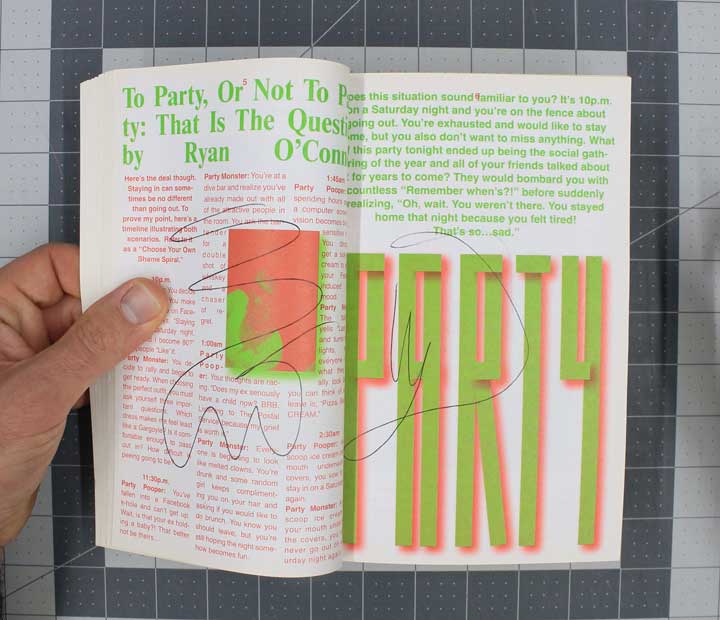 5
To Party, Or Not To P
ty: That Is The Questi
by Ryan O'Conn
Here's the deal though.
Staying in can some-
times be no different
than going out. To
prove my point, here's a
timeline illustrating both
scenarios. Refer to it
as a "Choose Your Own
Shame Spiral."
10p.m.
You decide
You make
on Face-
"Staying
Saturday night,
I become 80?"
people "Like" it.
Party Monster: You de-
cide to rally and begin to
get ready. When choosing
the perfect outfit, you must
ask yourself three impor-
tant questions: Which
dress makes me feel least
like a Gargoyle? Is it com-
fortable enough to pass
out in? How difficult is
peeing going to be?
11:30p.m.
Party Pooper: You've
fallen into a Facebook
e-hole and can't get up.
Wait, is that your ex hold-
ing a baby?! That better
not be theirs...
Party Monster: You're at a
dive bar and realize you've
already made out with all
of the attractive people in
the room. You ask the bar-
tender
for a
double
shot of
whiskey
and a
chaser
of re-
gret.
1:00am
Party
Poop-
er: Your thoughts are rac-
ing. "Does my ex seriously
have a child now? BRB.
Listening to The Postal
Service because my grief
is worth it."
Party Monster: Every-
one is beginning to look
like melted clowns. You're
drunk and some random
girl keeps compliment-
ing you on your hair and
asking if you would like to
do brunch. You know you
should leave, but you're
still hoping the night some-
how becomes fun.
1:45am
Party Pooper:
spending hours
a computer scree
vision becomes
sensitive
You dec
get a sc
cream
your Fac
induced
mood.
Party M
The
yells "Las
and turns
lights.
everyone
what they
ally look
you can think
leave is, "Pizza
CREAM."
2:30am
Party Pooper:
scoop ice cream
mouth underneath
covers, you vow
stay in on a Satur
again.
Party Monster: A
scoop ice cream
your mouth under
the covers, you
never go out on
urday night again
6
oes this situation sound familiar to you? It's 10p.m.
on a Saturday night and you're on the fence about
going out. You're exhausted and would like to stay
me, but you also don't want to miss anything. What
this party tonight ended up being the social gath-
ring of the year and all of your friends talked about
for years to come? They would bombard you with
countless "Remember when's?!" before suddenly
realizing, "Oh, wait. You weren't there. You stayed
home that night because you felt tired!
That's so...sad."
PARTY